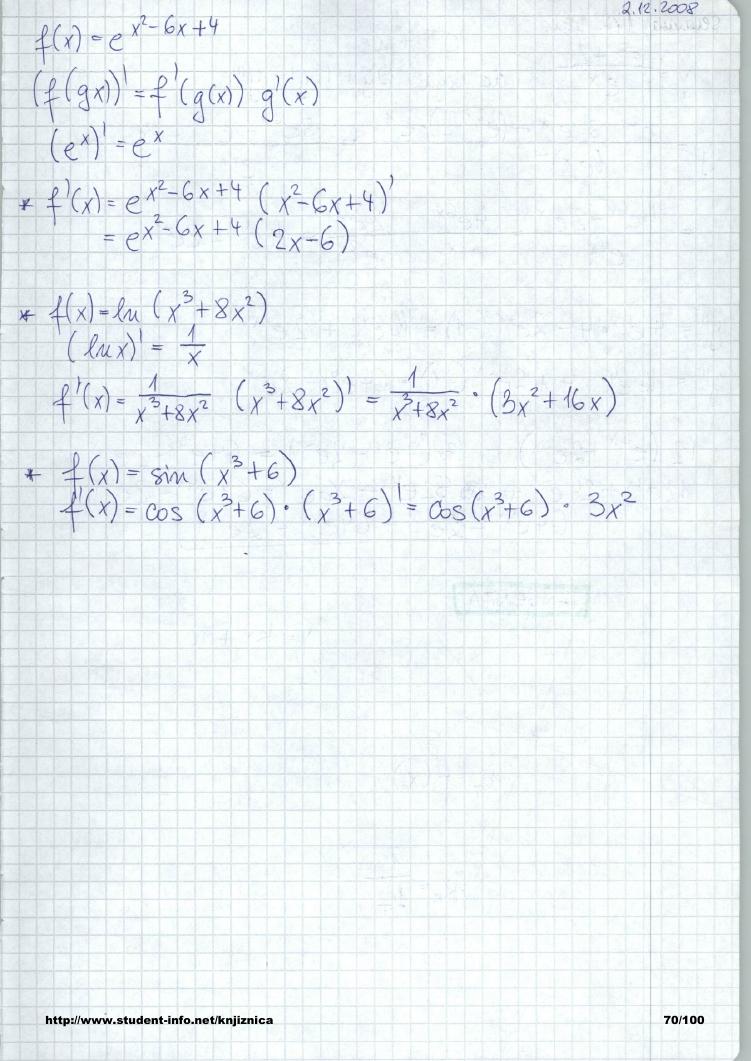 2.12.2008
f(x) = e^{x²-6x+4}
(f(gx))' = f'(g(x)) g'(x)
(e^x)' = e^x
* f'(x) = e^{x²-6x+4} (x²-6x+4)'
= e^{x²-6x+4} (2x-6)
* f(x) = ln (x³+8x²)
(ln x)' = 1/x
f'(x) = 1/(x³+8x²) (x³+8x²)' = 1/(x³+8x²) · (3x²+16x)
* f(x) = sin (x³+6)
f'(x) = cos (x³+6) · (x³+6)' = cos(x³+6) · 3x²
http://www.student-info.net/knjiznica
70/100